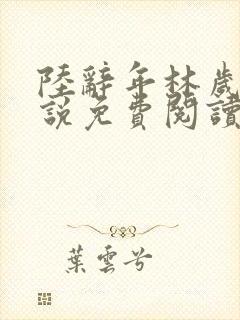 陸辭年林歲
說免費閱讀
葉雲兮